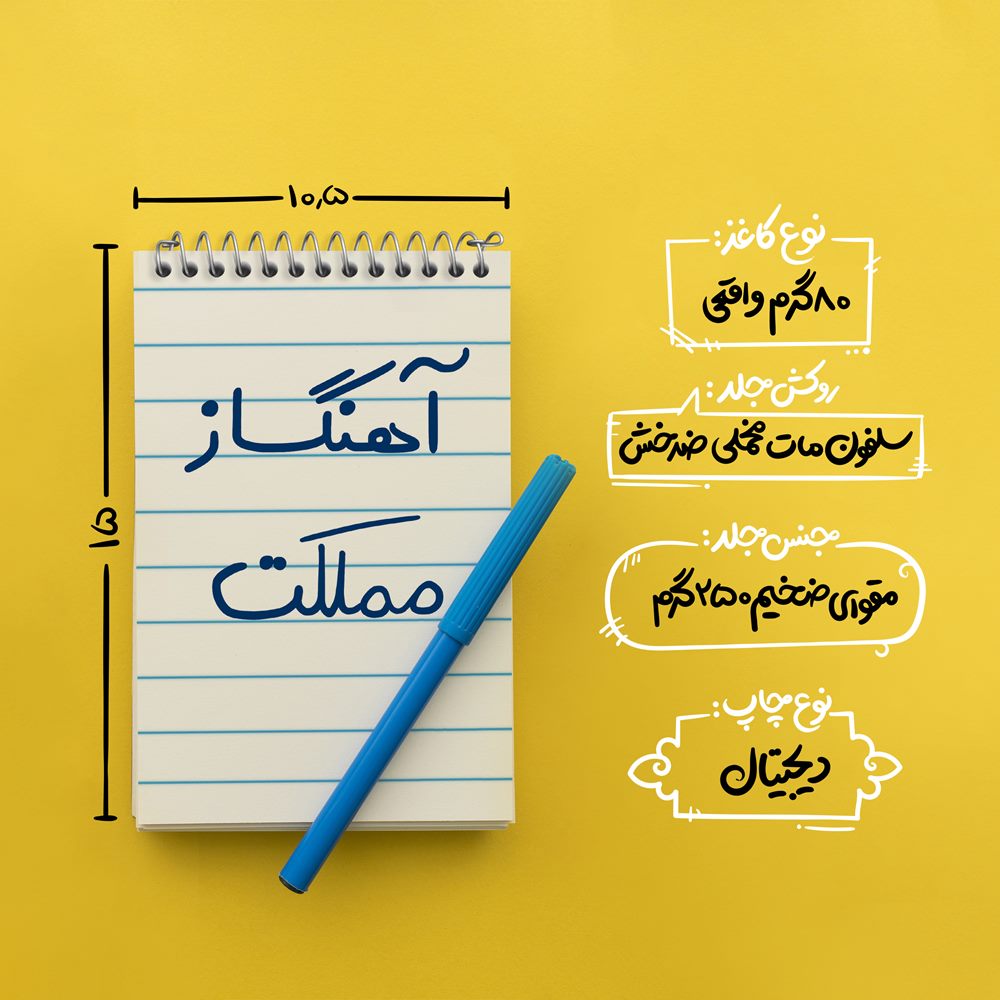 ۱۰٫۵
۱۵
آهنگساز
مملکت
نوع کاغذ:
۸۰گرم واقعی
روکش جلد:
سلفون مات مخملی ضدخش
جنس جلد:
مقوای ضخیم ۲۵۰گرم
نوع چاپ:
دیجیتال